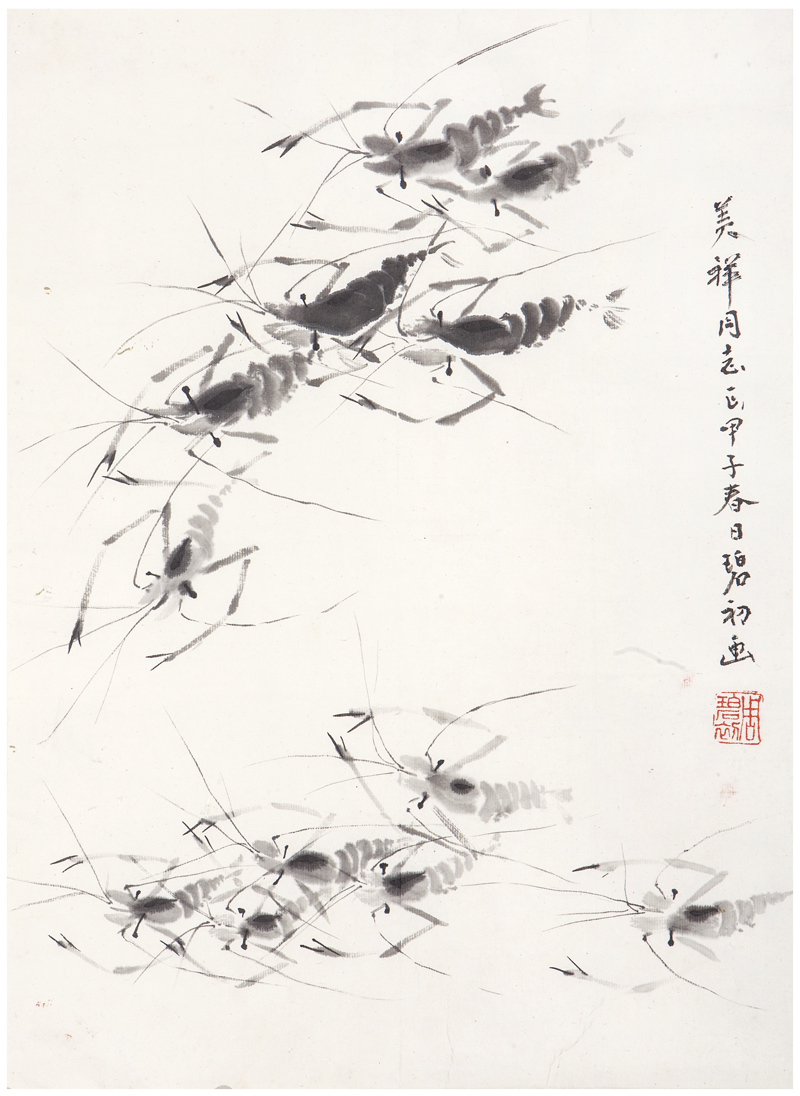 美祥同志正甲子春日碧初画
周碧初